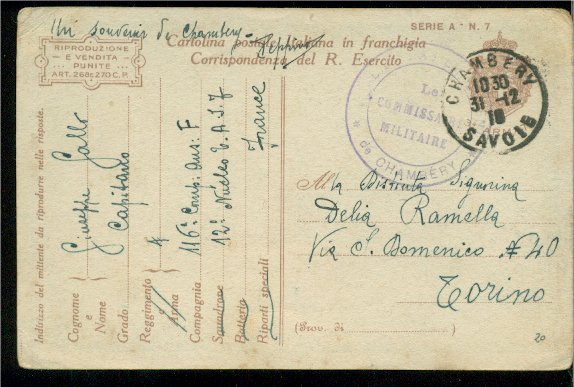 Un souvenir de Chambery
SERIE A * N. 7
RIPRODUZIONE
E VENDITA
PUNITE
ART. 268 E 270 C. P.
Cartolina postale italiana in franchigia
Corrispondenza del R. Esercito
Le
COMMISSAIRE
MILITAIRE
* de CHAMBÉRY
CHAMBERY
10 30
31 -12
18
SAVOIE
Indirizzo del mittente da riprodurre nelle risposte.
Cognome e Nome Giuseppe Gallo
Grado Capitano
Reggimento
Arma
Compagnia 116ª Comp. Aus: F
Squadrone 12º Nucleo T.A.I.F
Batteria
Riparti speciali France
Alla Distinta Signorina
Delia Ramella
Via S. Domenico N 40
Torino
(Prov. di )
20